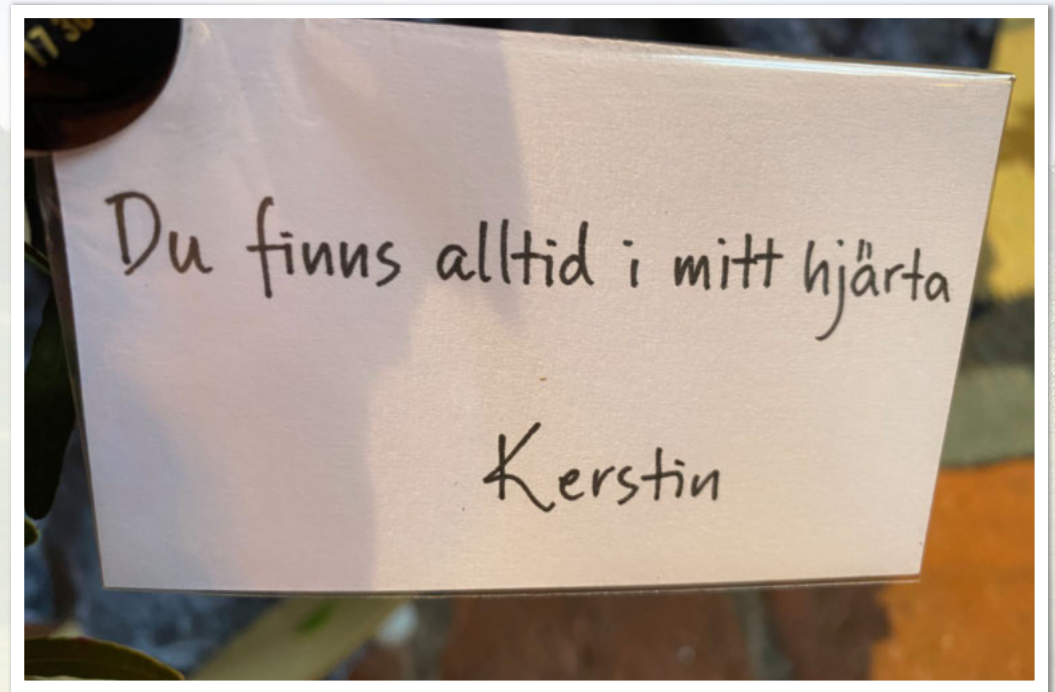 17 30
Du finns alltid i mitt hjärta
Kerstin